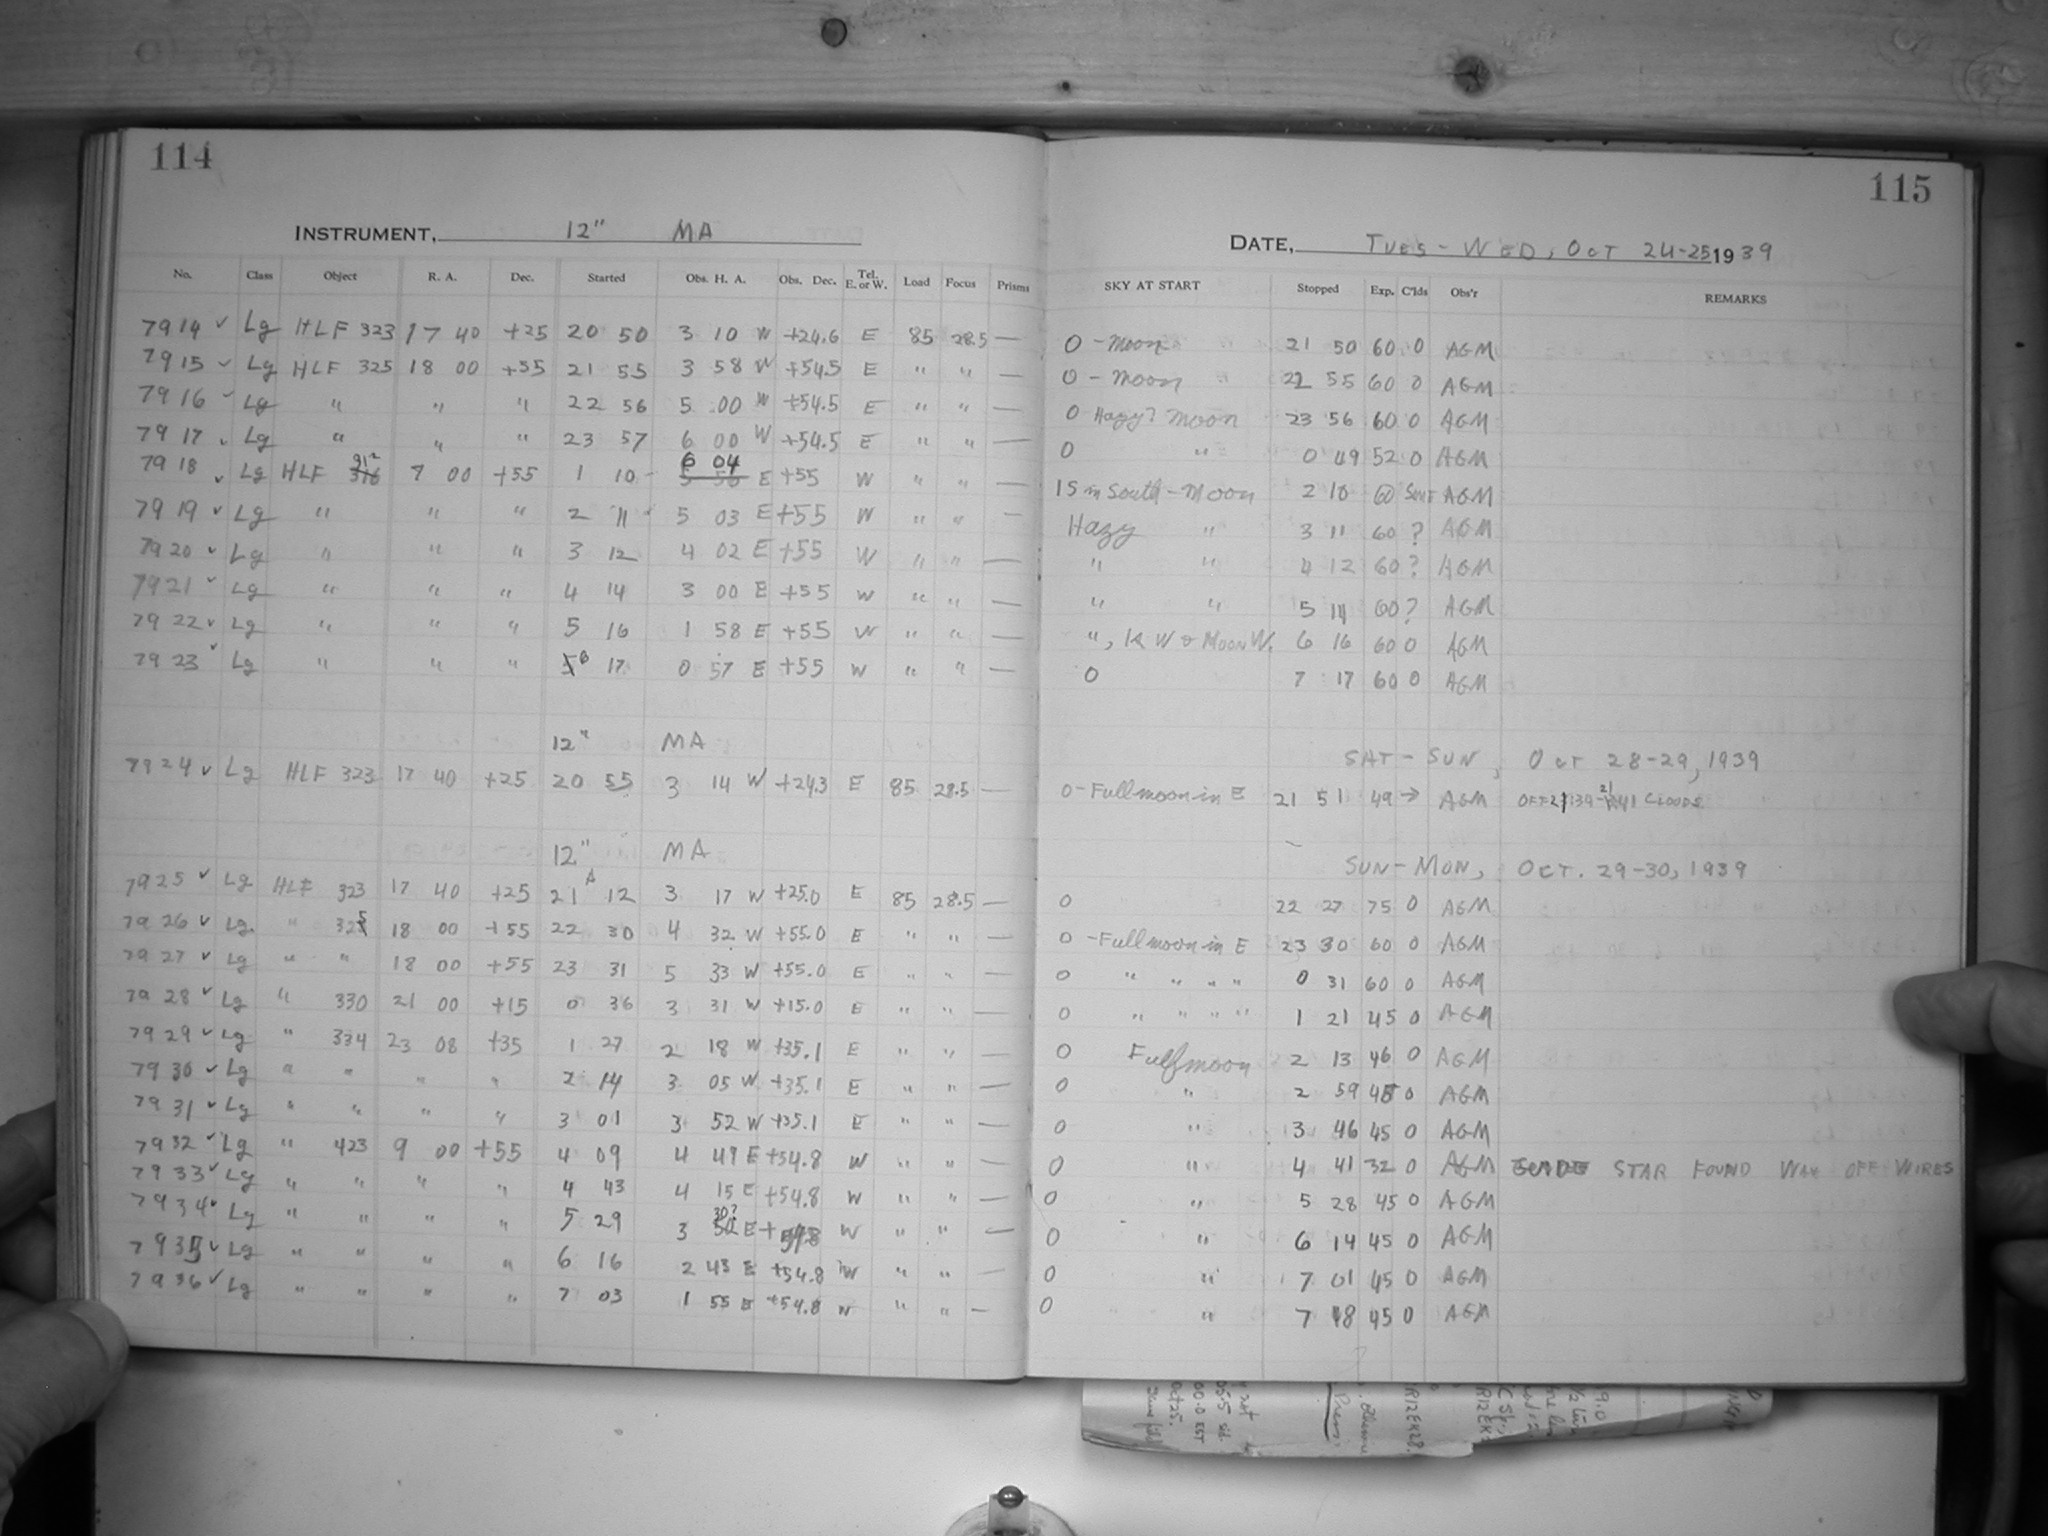 114
INSTRUMENT, 12" MA
No. Class Object R. A. Dec. Started Obs. H. A. Obs. Dec. Tel. E. or W. Load Focus Prisms
7914 ✓ Lg HLF 323 17 40 +25 20 50 3 10 W +24.6 E 85 28.5 —
7915 ✓ Lg HLF 325 18 00 +55 21 55 3 58 W +54.5 E " " —
7916 ✓ Lg " " " 22 56 5 00 W +54.5 E " " —
7917 ✓ Lg " " " 23 57 6 00 W +54.5 E " " —
7918 ✓ Lg HLF 7 00 +55 1 10 6 04 E +55 W " " —
7919 ✓ Lg " " " 2 11 5 03 E +55 W " " —
7920 ✓ Lg " " " 3 12 4 02 E +55 W " " —
7921 ✓ Lg " " " 4 14 3 00 E +55 W " " —
7922 ✓ Lg " " " 5 16 1 58 E +55 W " " —
7923 ✓ Lg " " " 6 17 0 57 E +55 W " " —
12" MA
7924 ✓ Lg HLF 323 17 40 +25 20 55 3 14 W +24.3 E 85 28.5 —
12" MA
7925 ✓ Lg HLF 323 17 40 +25 21 12 3 17 W +25.0 E 85 28.5 —
7926 ✓ Lg " 325 18 00 +55 22 30 4 32 W +55.0 E " " —
7927 ✓ Lg " " 18 00 +55 23 31 5 33 W +55.0 E " " —
7928 ✓ Lg " 330 21 00 +15 0 36 3 31 W +15.0 E " " —
7929 ✓ Lg " 334 23 08 +35 1 27 2 18 W +35.1 E " " —
7930 ✓ Lg " " " " 2 14 3 05 W +35.1 E " " —
7931 ✓ Lg " " " " 3 01 3 52 W +35.1 E " " —
7932 ✓ Lg " 423 9 00 +55 4 09 4 49 E +54.8 W " " —
7933 ✓ Lg " " " " 4 43 4 15 E +54.8 W " " —
7934 ✓ Lg " " " " 5 29 3 30? E +54.8 W " " —
7935 ✓ Lg " " " " 6 16 2 43 E +54.8 W " " —
7936 ✓ Lg " " " " 7 03 1 55 E +54.8 W " " —
115
DATE, TUES - WED, OCT 24-25 1939
SKY AT START Stopped Exp. C'lds Obs'r REMARKS
0 - Moon 21 50 60 0 AGM
0 - Moon " 22 55 60 0 AGM
0 Hazy? Moon 23 56 60 0 AGM
0 " 0 49 52 0 AGM
1S in South - Moon 2 10 60 AGM
Hazy " 3 11 60 ? AGM
" " 4 12 60 ? AGM
" " 5 14 60 ? AGM
", W Moon W. 6 16 60 0 AGM
0 7 17 60 0 AGM
SAT - SUN, OCT 28-29, 1939
0 - Full moon in E 21 51 49 → AGM OFF 21 39 - 21 41 CLOUDS
SUN - MON, OCT. 29-30, 1939
0 22 27 75 0 AGM
0 - Full moon in E 23 30 60 0 AGM
0 " " " " 0 31 60 0 AGM
0 " " " " 1 21 45 0 AGM
0 Full moon 2 13 46 0 AGM
0 " 2 59 45 0 AGM
0 " 3 46 45 0 AGM
0 " 4 41 32 0 AGM GUIDE STAR FOUND WAY OFF WIRES
0 " 5 28 45 0 AGM
0 " 6 14 45 0 AGM
0 " 7 01 45 0 AGM
0 " 7 48 45 0 AGM